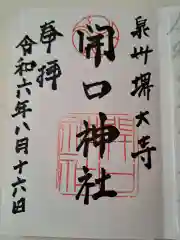 泉州堺大寺
開口神社
奉拝
令和六年八月十六日